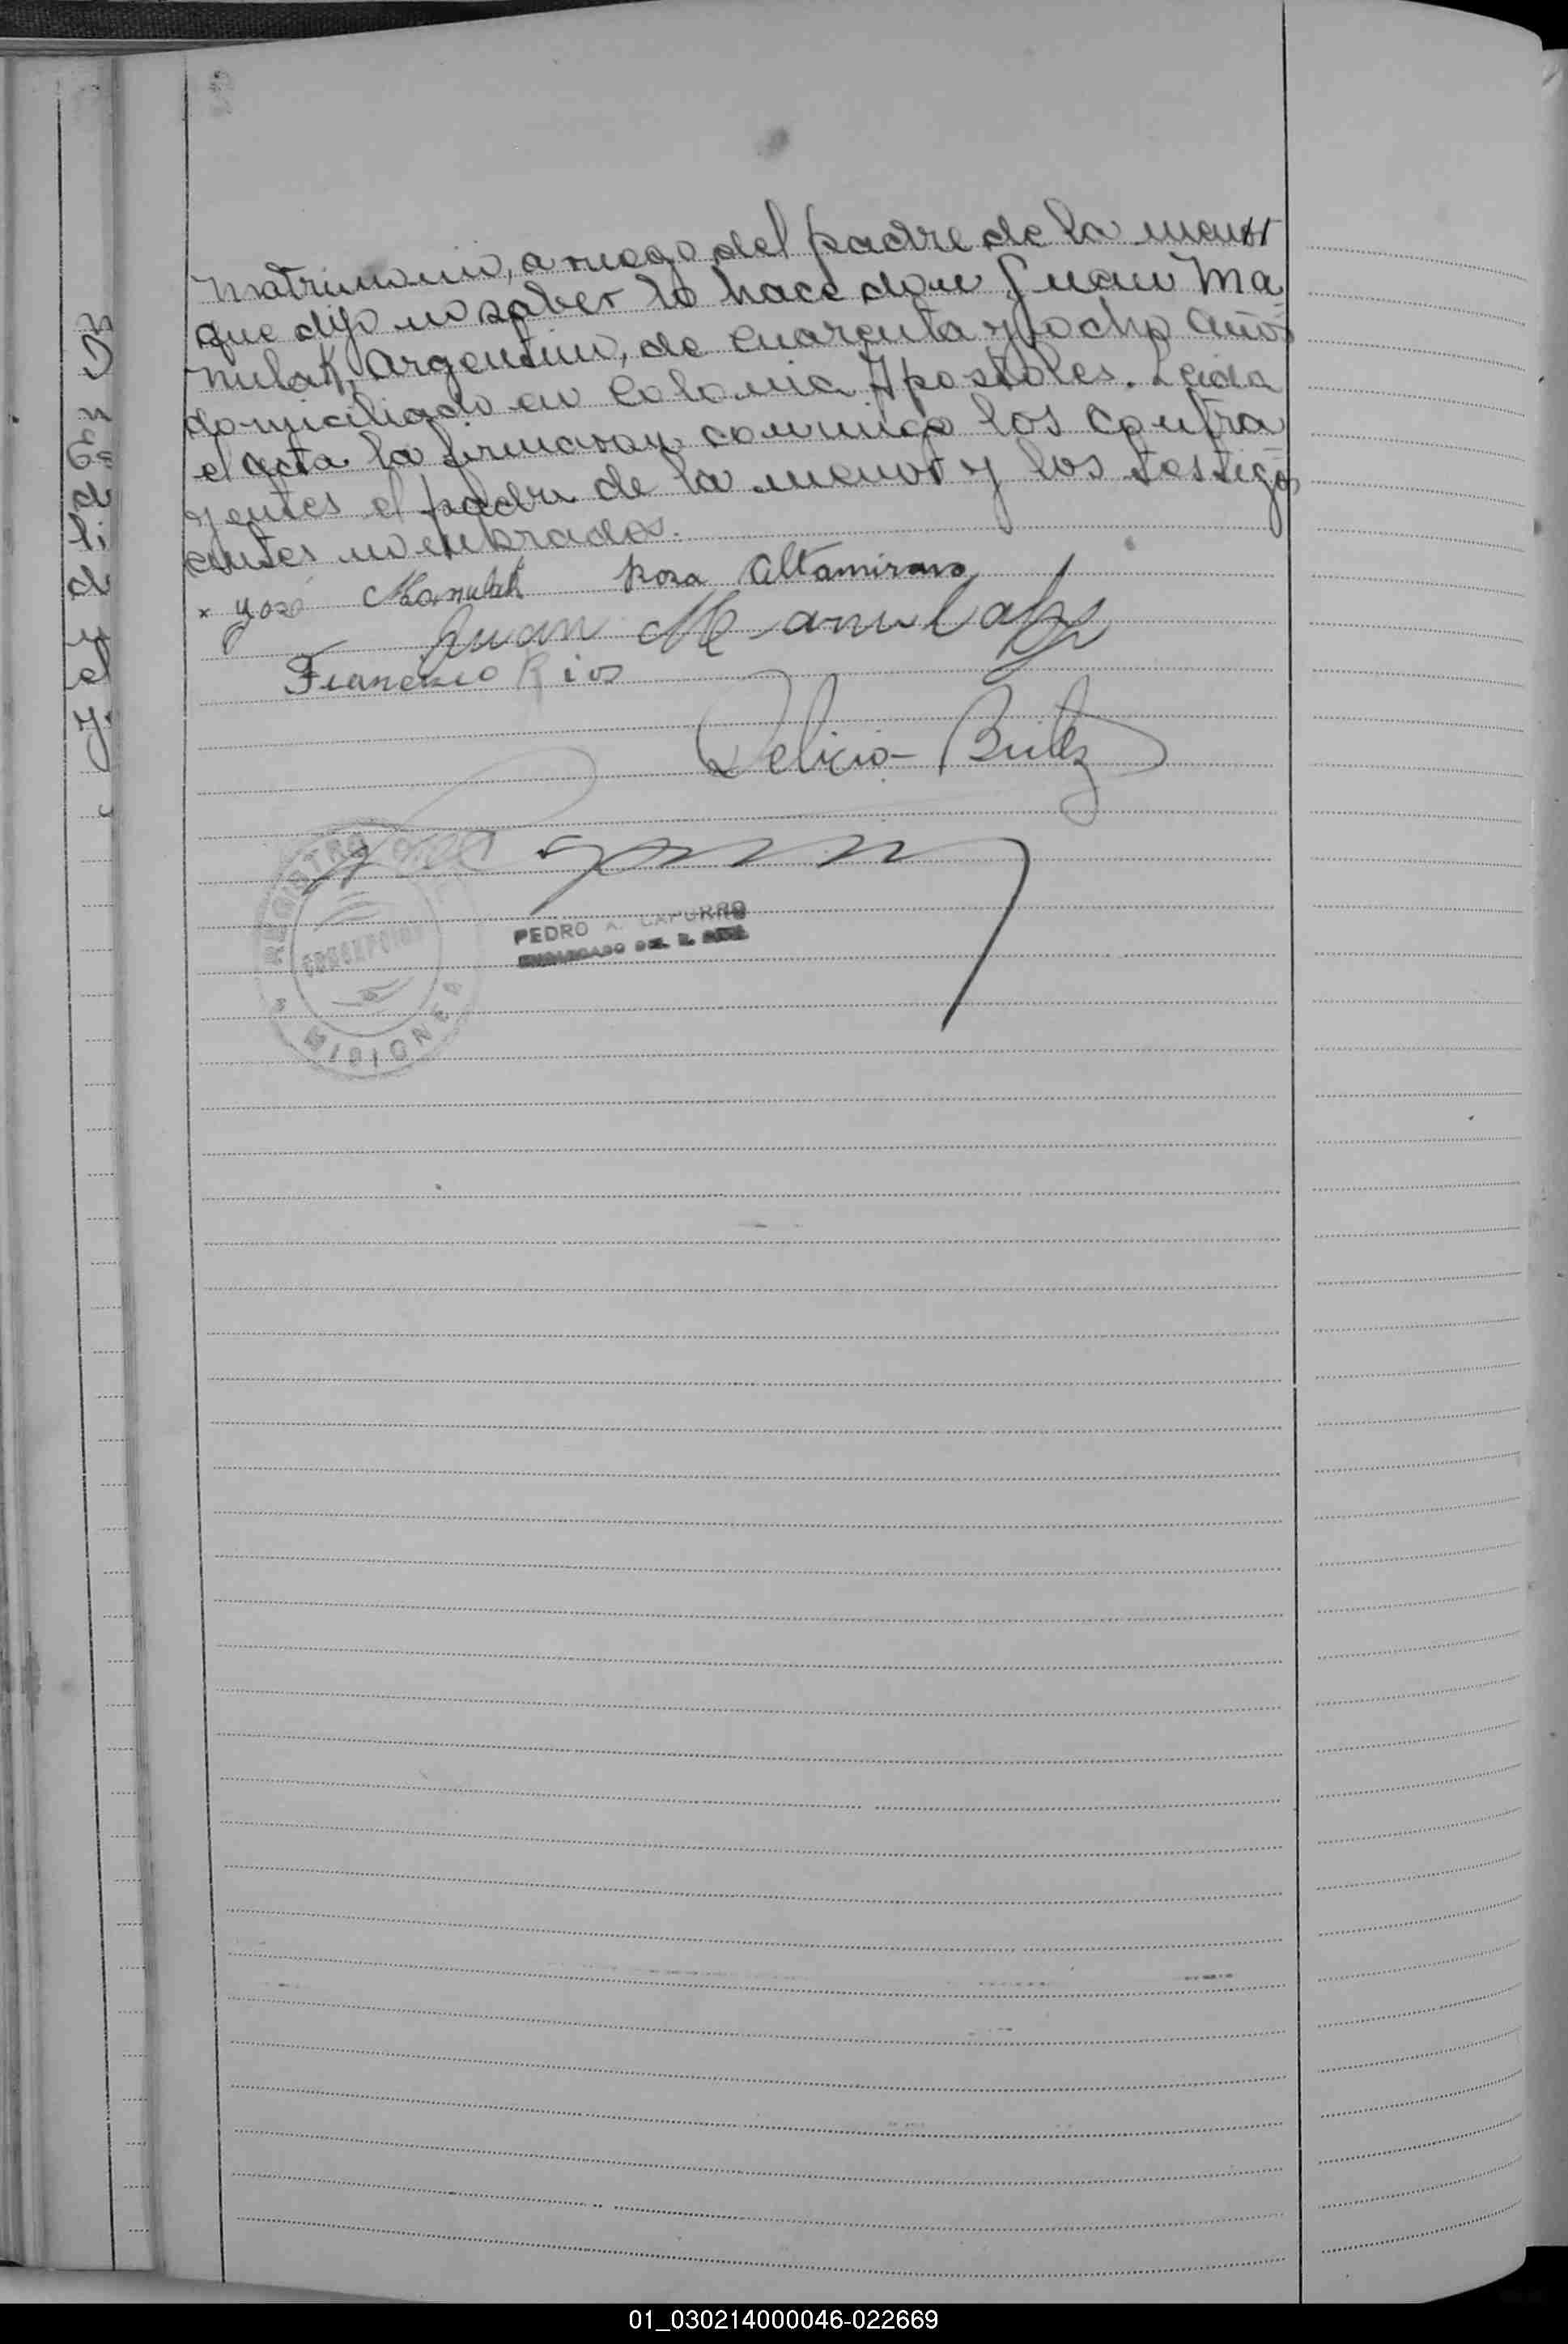 matrimonio, a ruego del padre de la menor
que dijo no saber lo hace don Juan Ma-
nulak, Argentino, de cuarenta y ocho años
domiciliado en Colonia Apostoles. Leida
el acta la firmaron conmigo los contra
yentes el padre de la menor y los testigos
antes nombrados.
x José Manulak Rosa Altamirano
Juan Manulak
Francisco Rios
Delicio Britez
REGISTRO
CONCEPCION
MISIONES
PEDRO A. CAPURRO
ENCARGADO DEL R. CIVIL
01_030214000046-022669